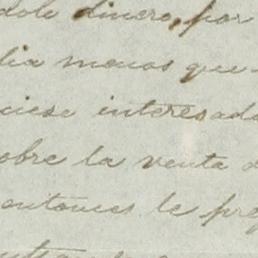 dole dinero, por
lia menos que
ciese interesado
sobre la venta d
entonces le pre